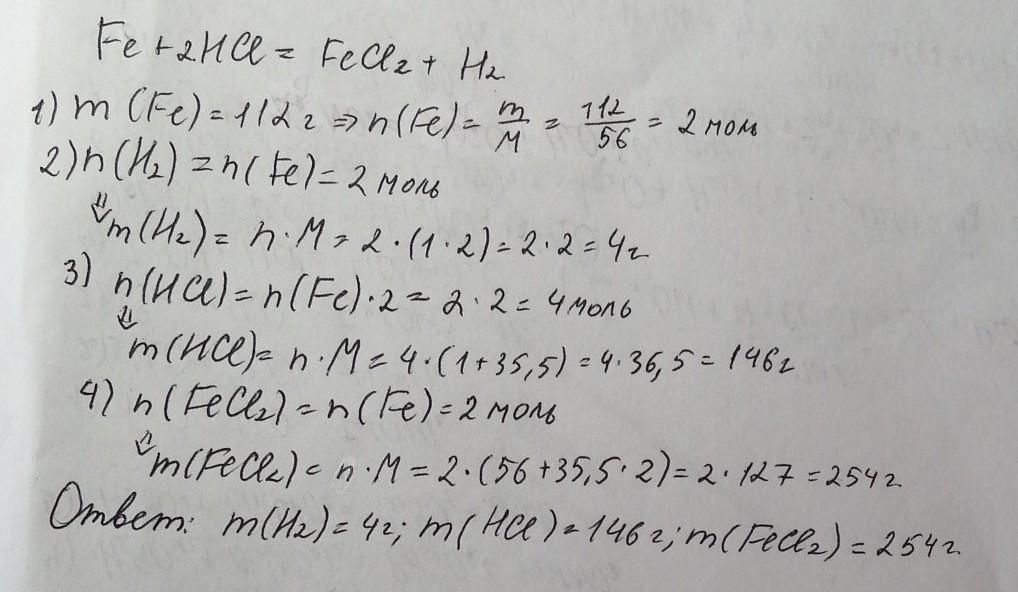 Fe + 2HCl = FeCl₂ + H₂
1) m (Fe) = 112 г ⇒ n (Fe) = m/M = 112/56 = 2 моль
2) n (H₂) = n (Fe) = 2 моль
⇓ m (H₂) = n · M = 2 · (1 · 2) = 2 · 2 = 4 г
3) n (HCl) = n (Fe) · 2 = 2 · 2 = 4 моль
⇓ m (HCl) = n · M = 4 · (1 + 35,5) = 4 · 36,5 = 146 г
4) n (FeCl₂) = n (Fe) = 2 моль
⇓ m (FeCl₂) = n · M = 2 · (56 + 35,5 · 2) = 2 · 127 = 254 г
Ответ: m (H₂) = 4 г; m (HCl) = 146 г; m (FeCl₂) = 254 г.